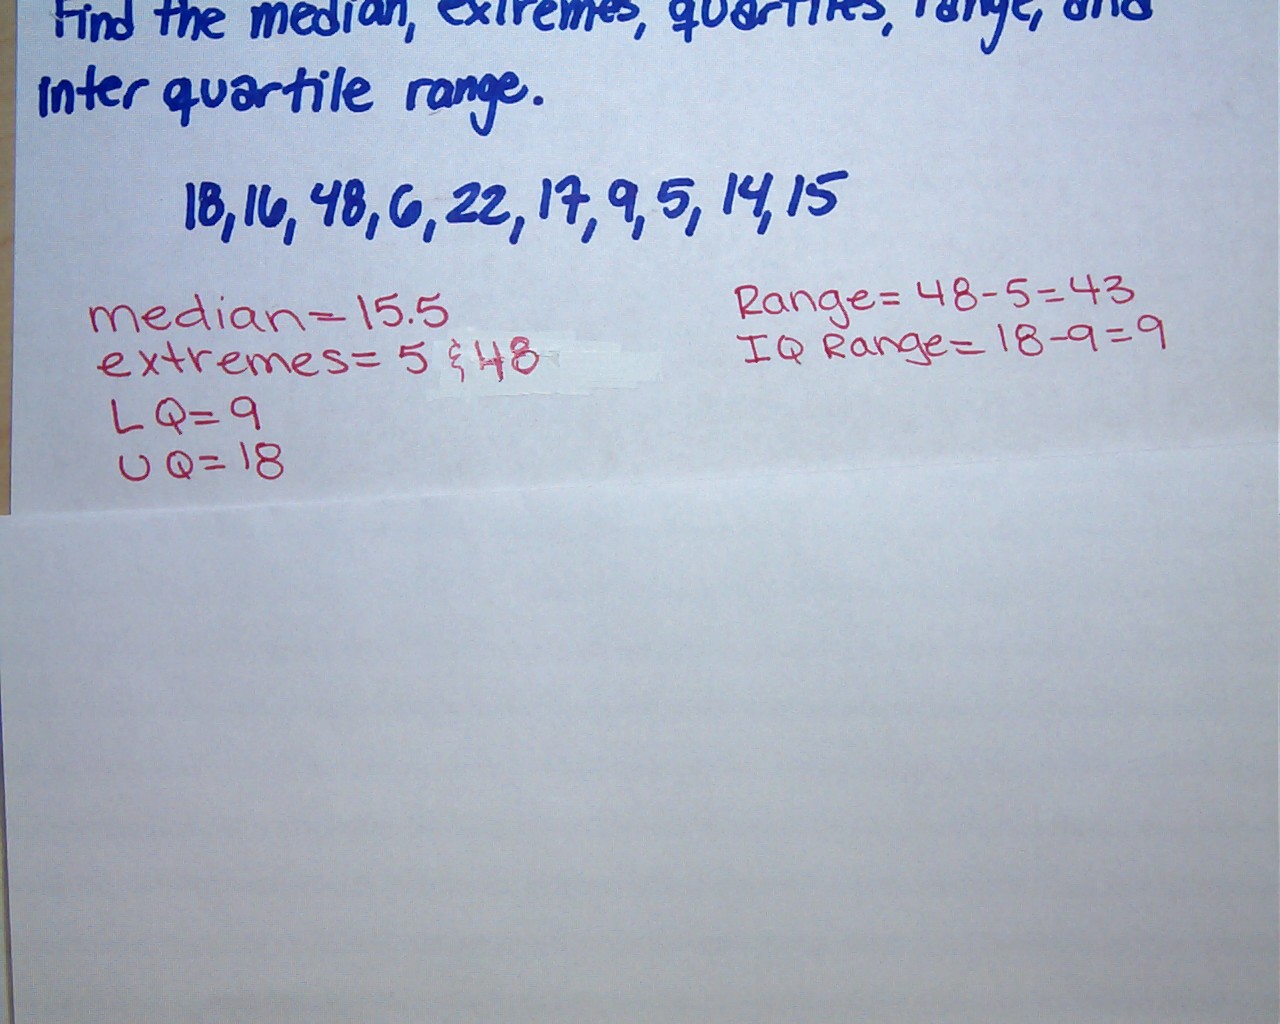 Find the median, extremes, quartiles, range, and
inter quartile range.
18, 16, 48, 6, 22, 17, 9, 5, 14, 15
median = 15.5
extremes = 5 & 48
LQ = 9
UQ = 18
Range = 48 - 5 = 43
IQ Range = 18 - 9 = 9